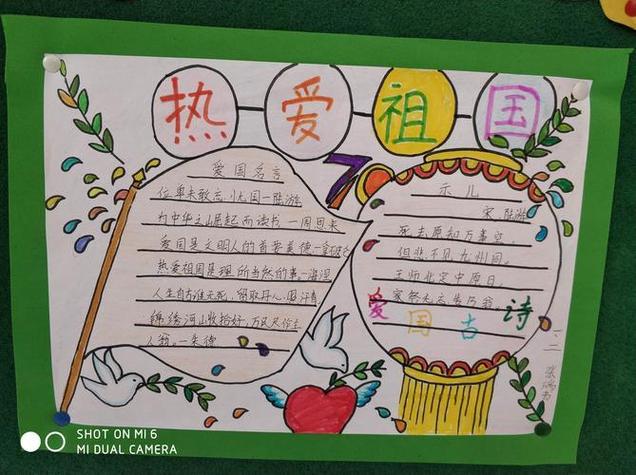 热爱祖国
爱国名言
位卑未敢忘忧国一陆游
为中华之崛起而读书一周恩来
爱国是文明人的首若美德一拿破仑
热爱祖国是理所当然的事。一海涅
人生自古谁无死,留取丹心照汗青
锦绣河山收拾好,万民尽作主
人翁。一朱德
示儿
宋 陆游
死去原知万事空
但悲不见九州同。
王师北定中原日,
家祭无忘告乃翁。
爱国古诗
SHOT ON MI 6
MI DUAL CAMERA